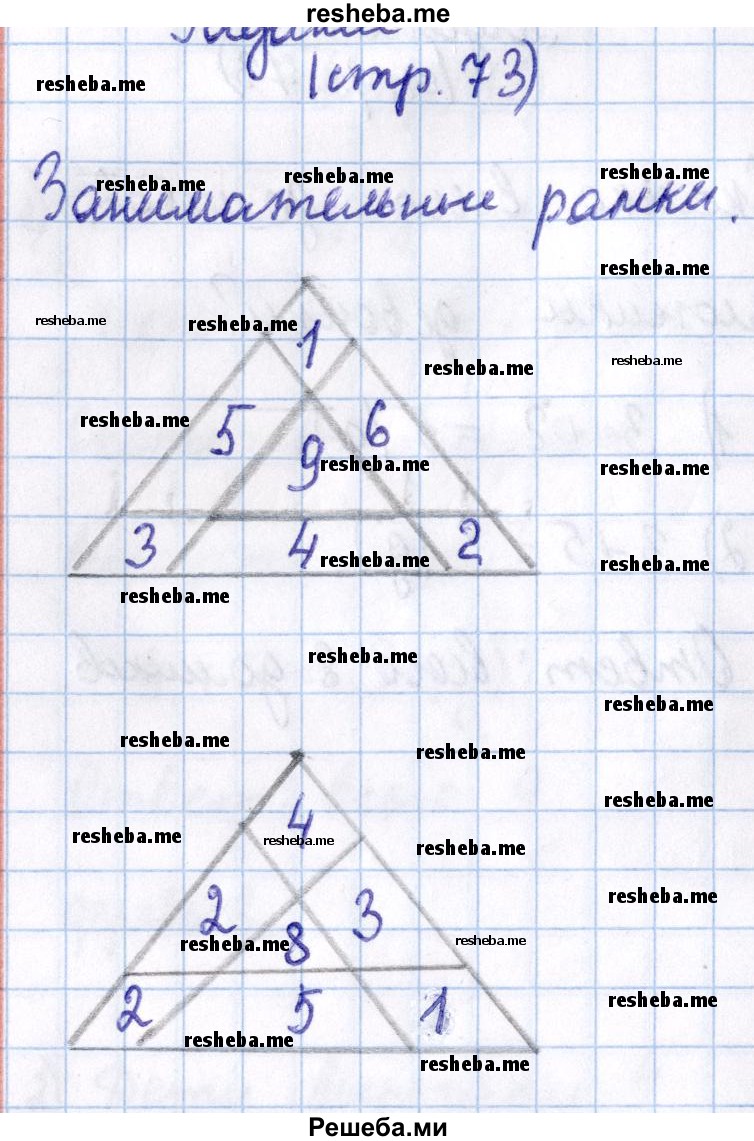 resheba.me
(стр. 73)
resheba.me
Занимательные рамки.
resheba.me resheba.me resheba.me
resheba.me
resheba.me resheba.me
1
resheba.me resheba.me
resheba.me
5 6
9 resheba.me resheba.me
3 4 2
resheba.me resheba.me
resheba.me
resheba.me
resheba.me
resheba.me resheba.me
resheba.me
4
resheba.me resheba.me resheba.me
resheba.me
2 3
8
resheba.me resheba.me
2 5 1
resheba.me
resheba.me
resheba.me
Решеба.ми